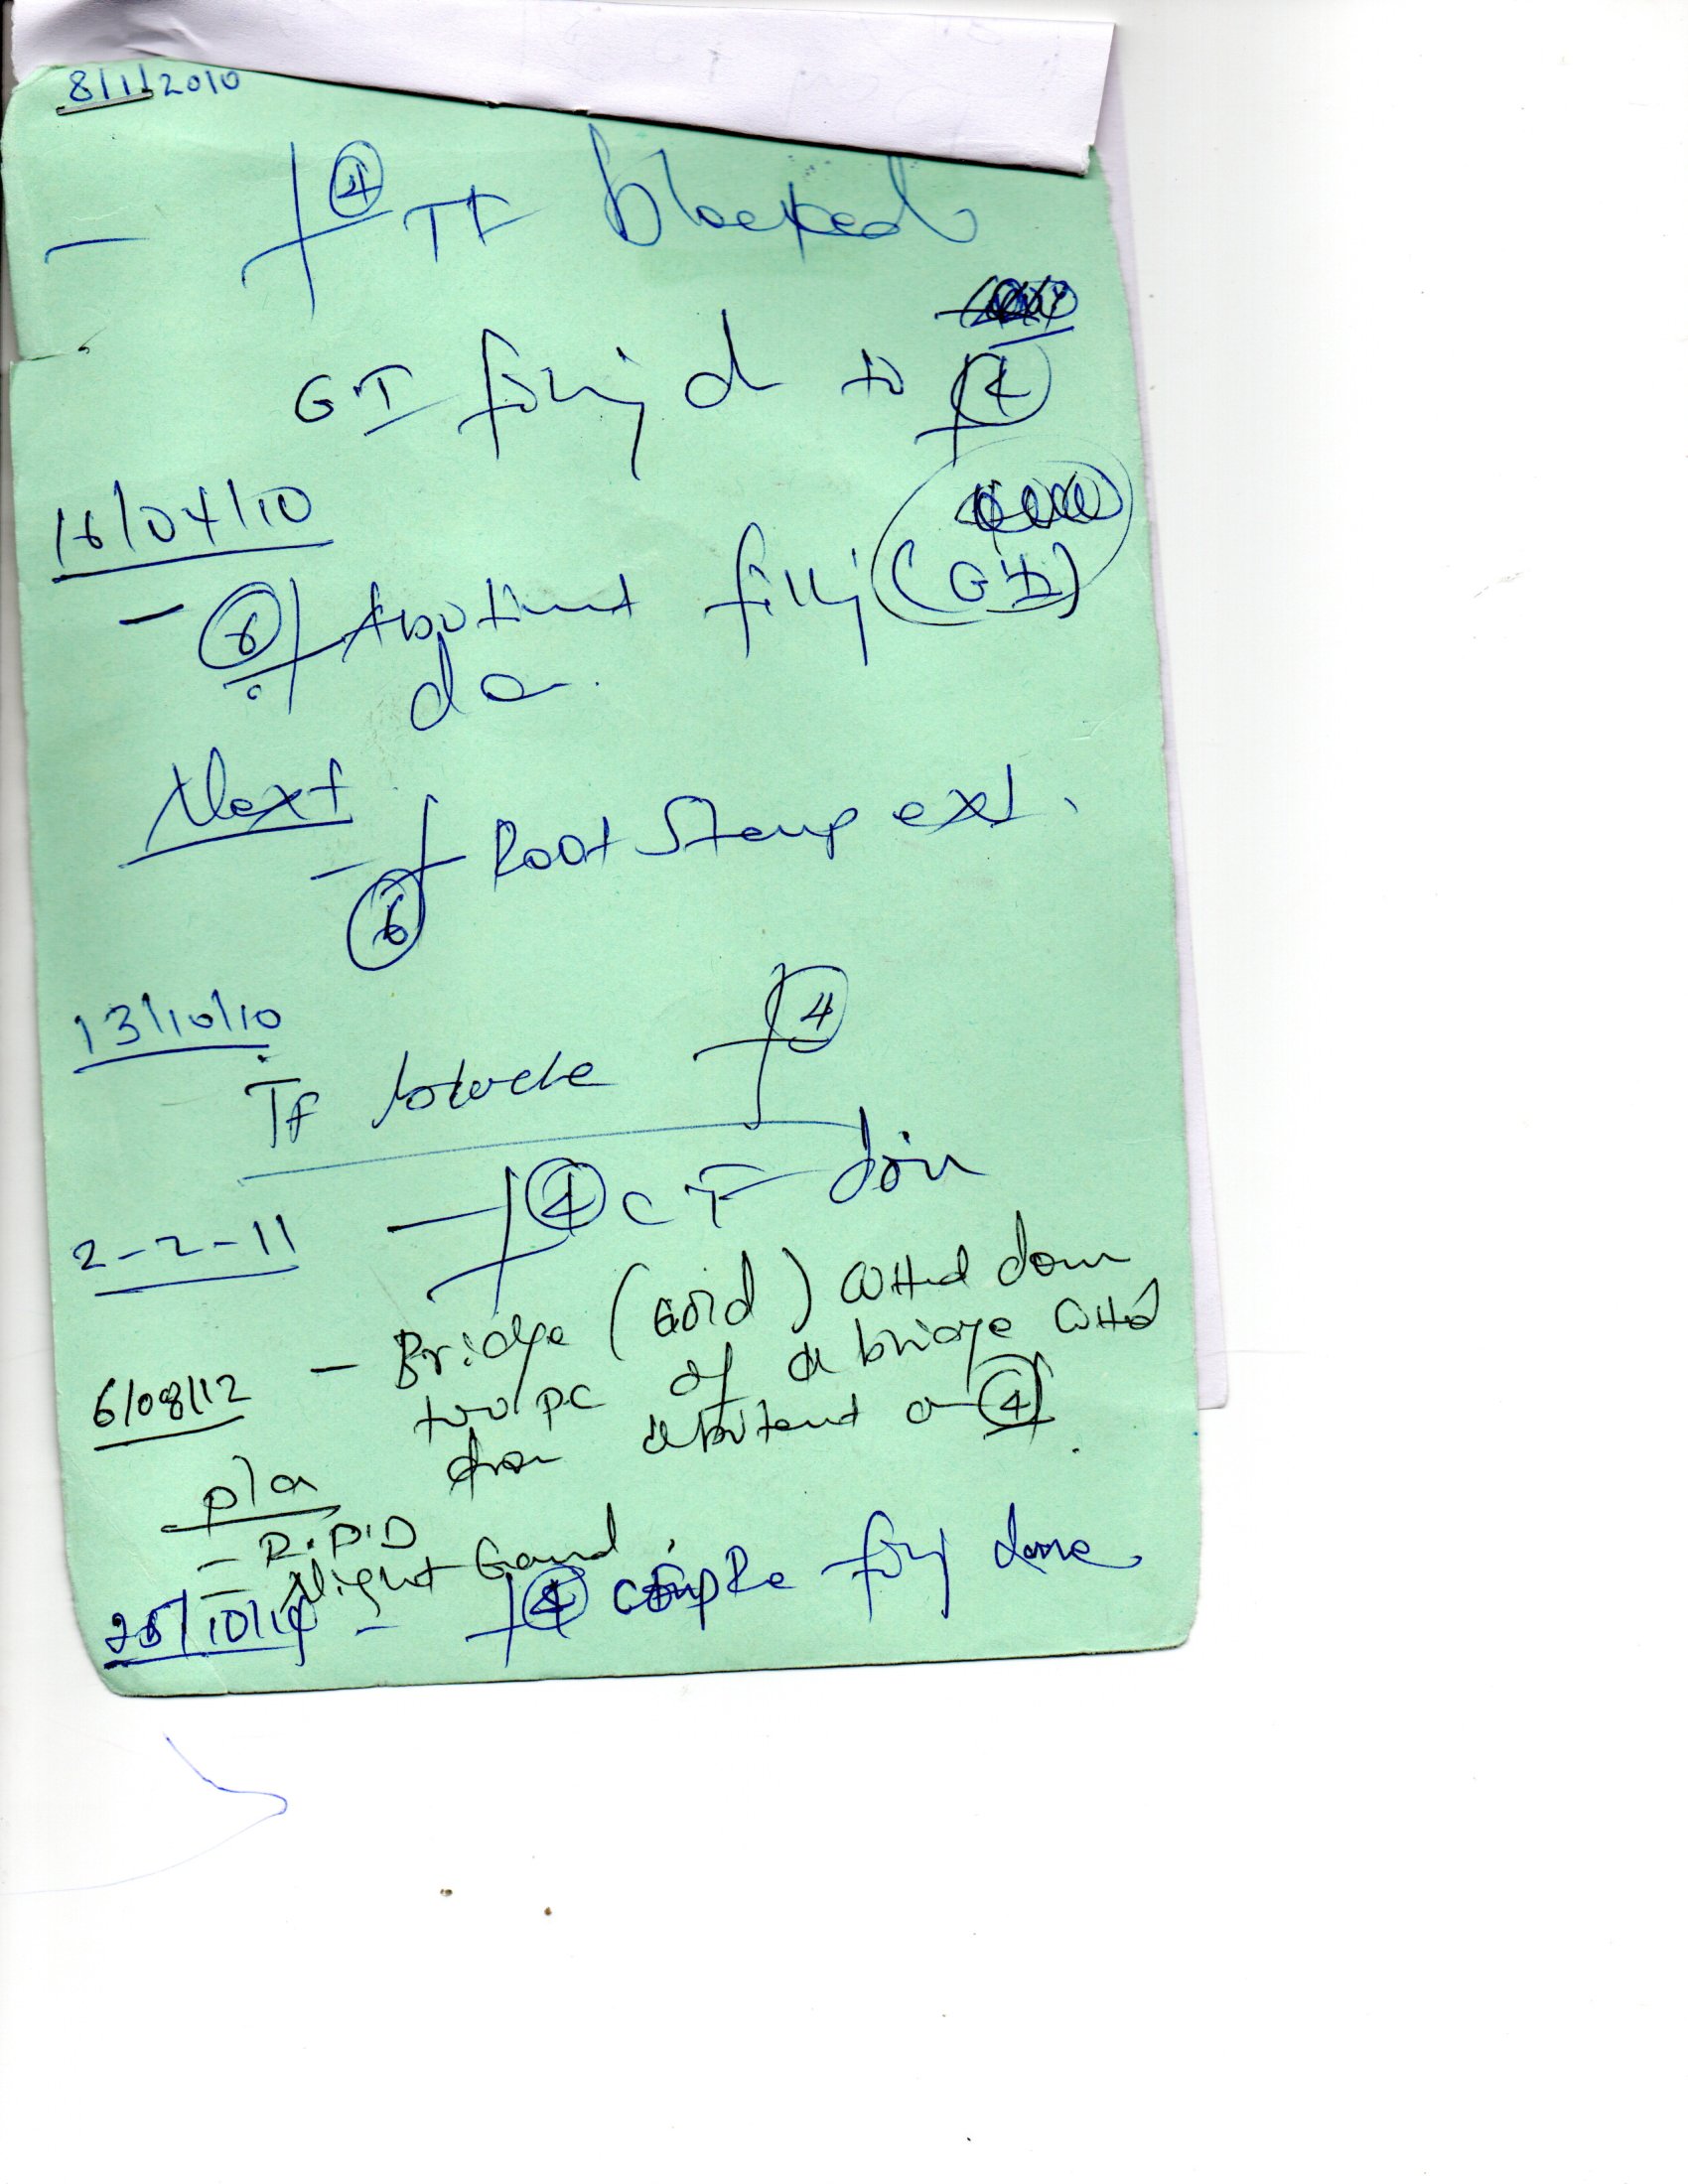 8/1/2010
- 4 TF blocked
GI filling d to 4
16/04/10
- 6 Abutment filling (GI)
do.
Next
- 6 Root Stump ext.
13/10/10
TF blocke 4
2-2-11 - 4 C F don
6/08/12 - Bridge (Gold) cutted down
two pc of d bridge cutted
from abutent on 4
plan
- R.P.D
- Night Gaurd
25/10/14 - 4 comple filling done